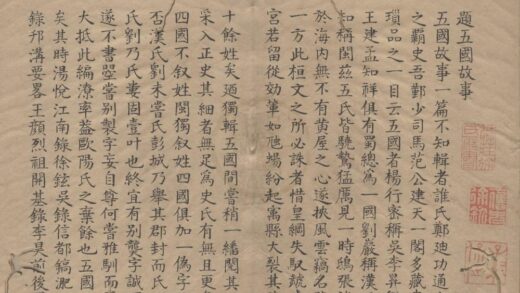 題五國故事
五國故事一篇不知輯者誰氏鄭廸功通
之覇史吾鄞少司馬范公建天一閣多藏
瑣品之一目云五國者楊行密稱吳李昪
王建孟知祥俱有蜀總為一國劉巖稱漢
知稱閩茲五氏皆驍驁猛厲見一時鴟張
於海內無不有黃屋之心遂挾風雲竊名
一方此桓文之所必誅者惜皇綱失馭號
宮若留從効軰如虺埸紛起寓縣大裂其
十餘姓矣廼獨輯五國間嘗稍一繙閱其
采入正史其細者無足為史氏有無且更
四國不叙姓閩獨叙姓四國俱加一偽字
否漢氏劉未嘗氏彭城乃舉其郡封而氏
氏劉乃氏固壹也終宜有別龑字誠
遂不書曌嘗別製字妄自尊何嘗雅馴而
大抵此編潦率蓋歐陽氏之葉餘也五國
矣其時湯悅江南錄徐鉉吳錄信都鎬淝
錄邗溝要畧王顏烈祖開基錄李昊前後